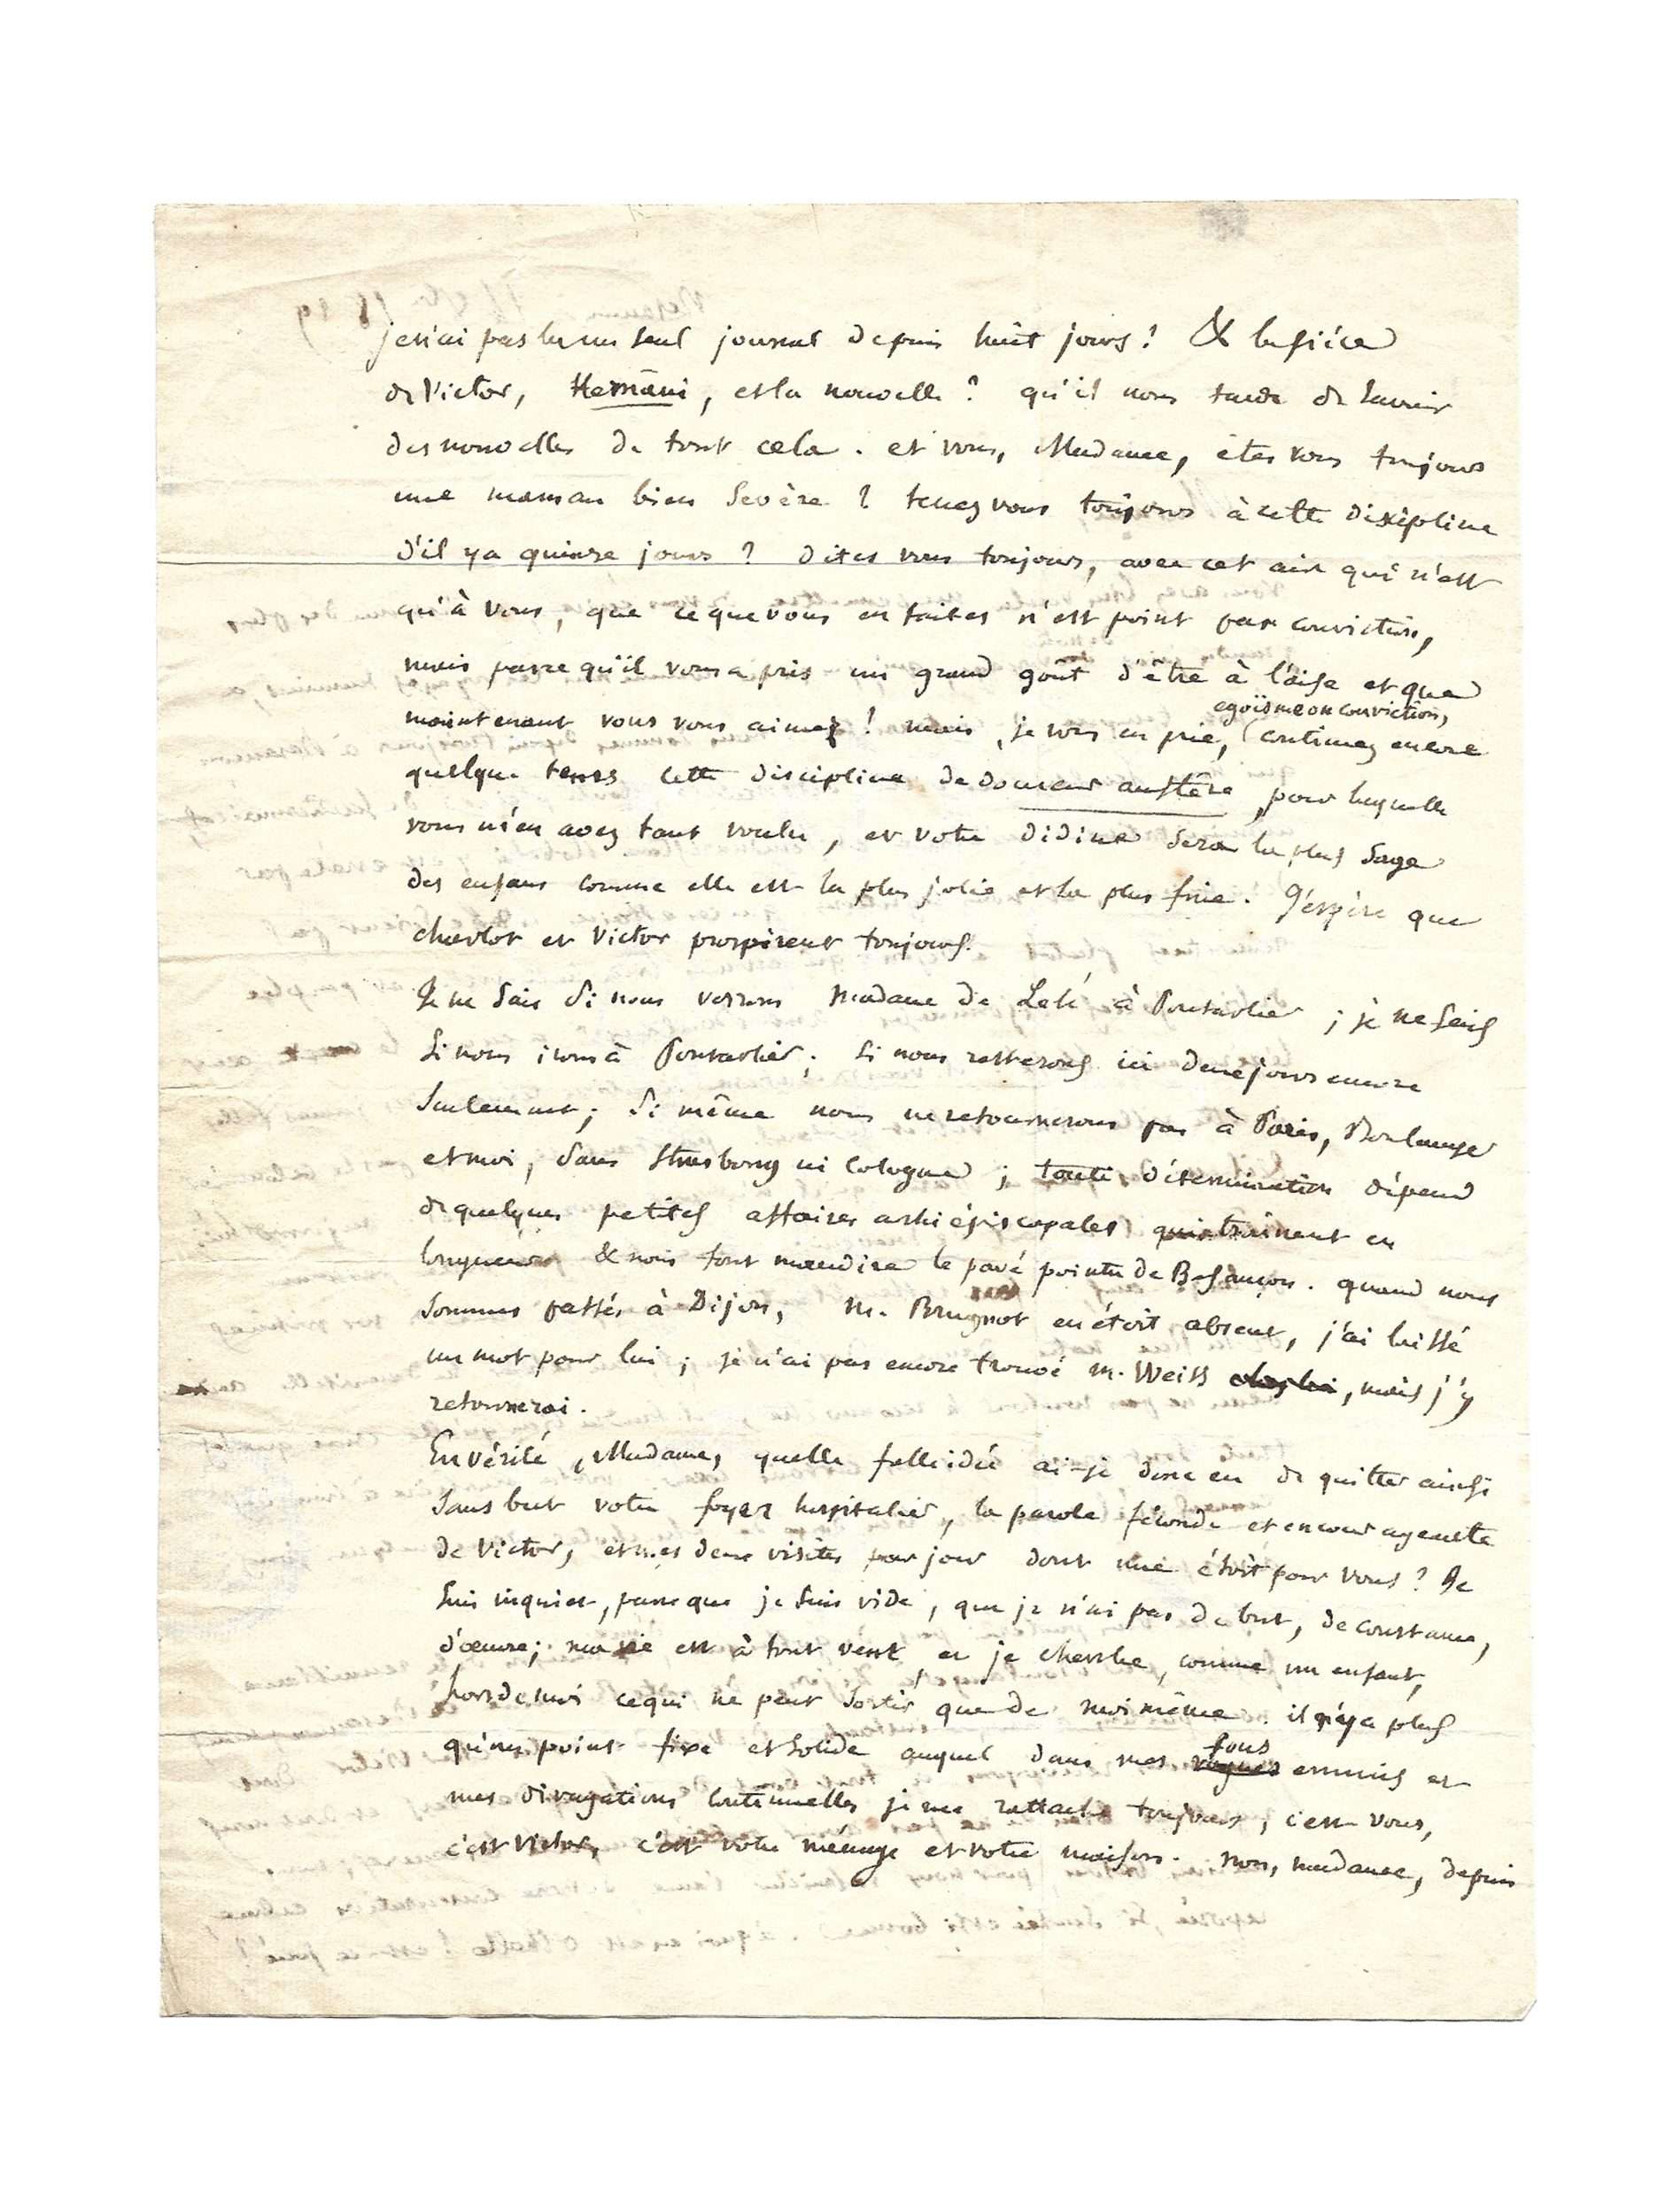 je n'ai pas lu un seul journal depuis huit jours! & la pièce
de Victor, Hernani, est la nouvelle? qu'il nous tarde de savoir
des nouvelles de tout cela. et vous, Madame, êtes vous toujours
une maman bien sevère? tenez vous toujours à cette discipline
d'il y a quinze jours? dites vous toujours, avec cet air qui n'est
qu'à vous, que ce que vous en faites n'est point par conviction,
mais parce qu'il vous a pris un grand goût d'être à l'aise et que
maintenant vous vous aimez! mais, je vous en prie, (egoïsme ou conviction, continuez encore
quelque temps cette discipline de douceur austère pour laquelle
vous m'en avez tant voulu, et votre Didine sera la plus sage
des enfans comme elle est la plus jolie et la plus fine. J'espère que
charlot et Victor prospèrent toujours.
Je ne sais si nous verrons Madame de Lelé à Pontarlier; je ne sais
si nous irons à Pontarlier; si nous resterons ici deux jours encore
seulement; si même nous ne retournerons pas à Paris, Boulanger
et moi, sans Strasbourg ni Cologne; toute détermination dépend
de quelques petites affaires archiépiscopales qui traînent en
longueur & nous font maudire le pavé pointu de Besançon. quand nous
sommes passés à Dijon, M. Brugnot en étoit absent, j'ai laissé
un mot pour lui; je n'ai pas encore trouvé M. Weiss chez lui, mais j'y
retournerai.
En vérité, Madame, quelle folle idée ai-je donc eu de quitter ainsi
sans but votre foyer hospitalier, la parole féconde et encourageante
de Victor, et mes deux visites par jour dont une étoit pour vous? Je
suis inquiet, parce que je suis vide, que je n'ai pas de but, de constance,
d'œuvre; ma vie est à tout vent, et je cherche, comme un enfant,
hors de moi ce qui ne peut sortir que de moi même. il n'y a plus
qu'un point fixe et solide auquel dans mes vagues fous ennuis et
mes divagations continuelles je me rattache toujours; c'est vous,
c'est Victor, c'est votre ménage et votre maison. non, madame, depuis